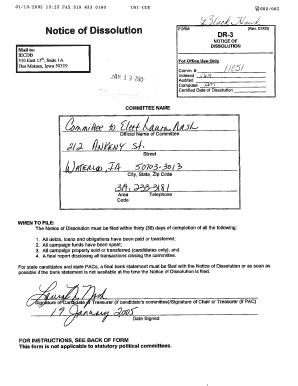 01/19/2005 13:25 FAX 319 433 0160 UNI-CUE 002/002
Black Hawk
Notice of Dissolution
FORM
DR-3
NOTICE OF
DISSOLUTION
Mail to:
IECDB
510 East 12th, Suite 1A
Des Moines, Iowa 50319
For Office Use Only
Comm. # 11051
Indexed
Audited
Computer
Certified Date of Dissolution
JAN 19
COMMITTEE NAME
Committee to Elect Laura Nash
Official Name of Committee
212 Ankeny St.
Street
Waterloo, IA 50703-3013
City, State, Zip Code
319. 233-3181
Area Code Telephone
WHEN TO FILE:
The Notice of Dissolution must be filed within thirty (30) days of completion of all the following:
1. All debts, loans and obligations have been paid or transferred;
2. All campaign funds have been spent;
3. All campaign property sold or transferred (candidates only); and
4. A final report disclosing all transactions closing the committee.
For state candidates and state PACs, a final bank statement must be filed with the Notice of Dissolution or as soon as
possible if the bank statement is not available at the time the Notice of Dissolution is filed.
Signature of Candidate or Treasurer (if candidate's committee)/Signature of Chair or Treasurer (if PAC)
19 January 2005
Date Signed
FOR INSTRUCTIONS, SEE BACK OF FORM
This form is not applicable to statutory political committees.